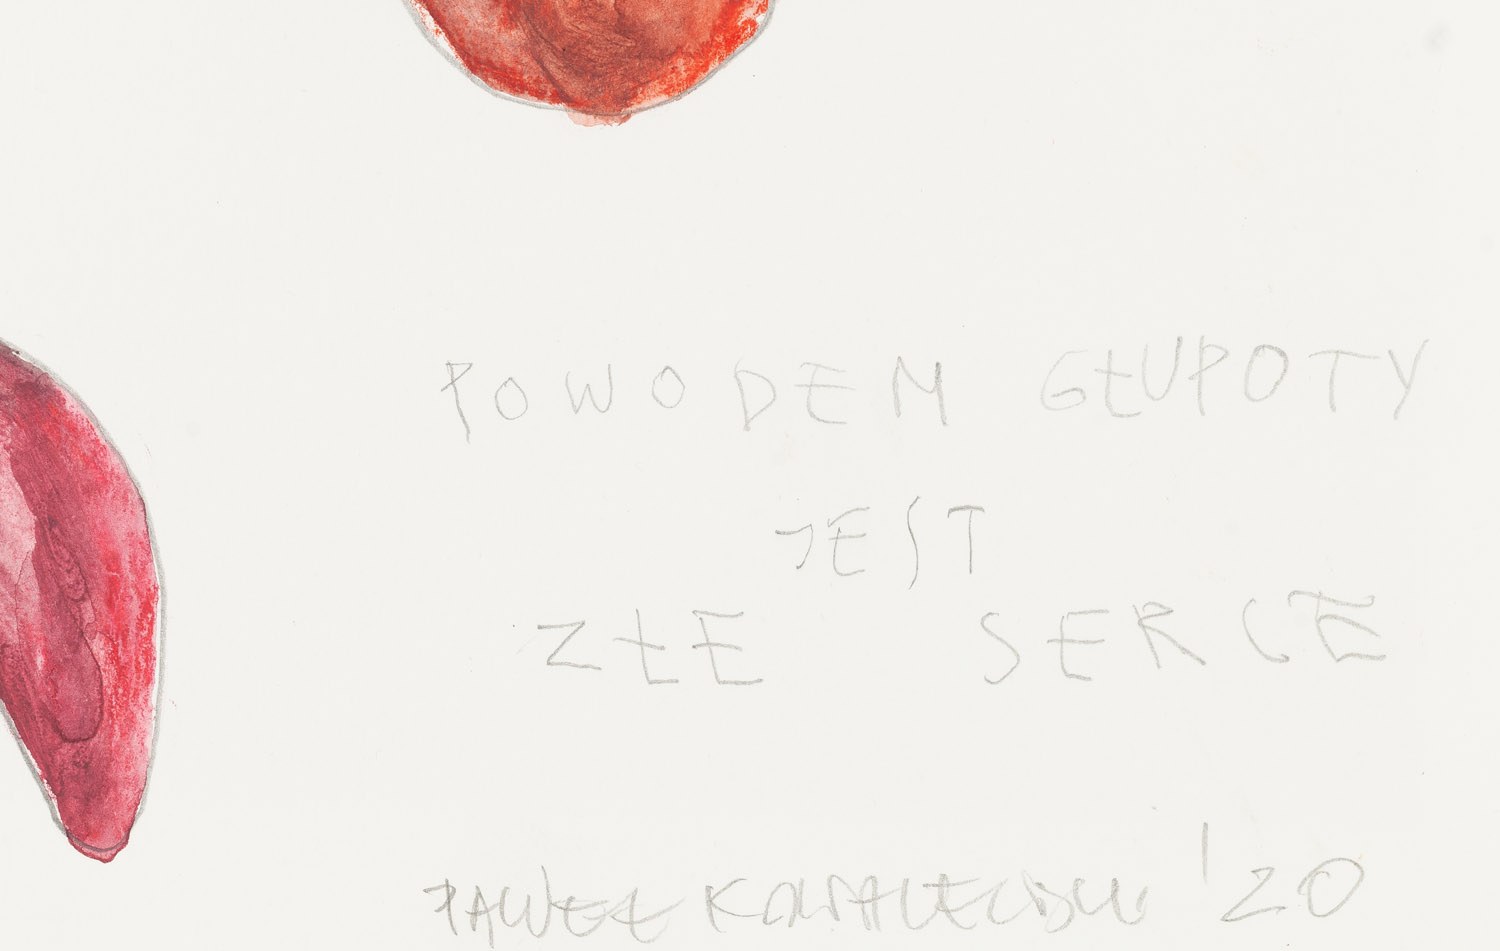 POWODEM GŁUPOTY
JEST
ZŁE SERCE
PAWEŁ KOWALEWSKI '20